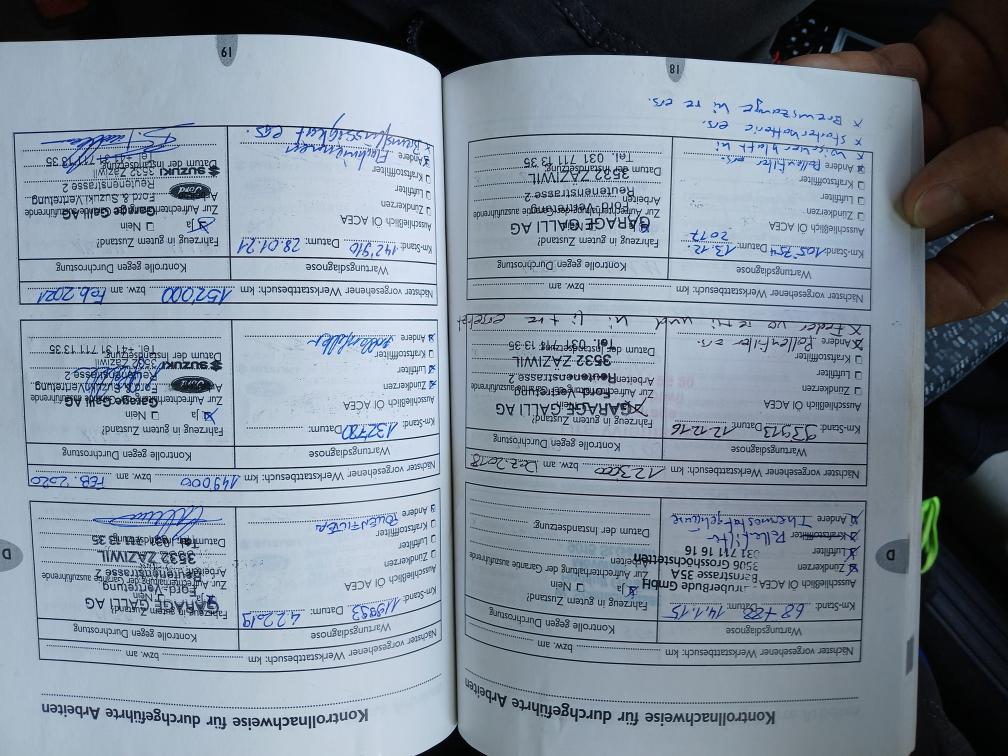 Kontrollnachweise für durchgeführte Arbeiten
Nächster vorgesehener Werkstattbesuch: km: bzw. am
Wartungsdiagnose
Kontrolle gegen Durchrostung
Km-Stand: Datum: 14.1.15
Ausschließlich Öl ACEA
Zündkerzen
Luftfilter
Kraftstofffilter
Andere Thermostatgehäuse
GmbH
Bernstrasse 35A
3506 Grosshöchstetten
031 711 16 16
Fahrzeug in gutem Zustand?
Ja Nein
Zur Aufrechterhaltung der Garantie auszuführende
Arbeiten
Datum der Instandsetzung
D
Nächster vorgesehener Werkstattbesuch: km: 123000 bzw. am Dez. 2018
Wartungsdiagnose
Kontrolle gegen Durchrostung
Km-Stand: 93913 Datum: 12.12.16
Ausschließlich Öl ACEA
Zündkerzen
Luftfilter
Kraftstofffilter
Andere Pollenfilter ers.
x Feder vo re + li und hi li + re ersetzt
Fahrzeug in gutem Zustand?
GARAGE GALLI AG
Ford-Vertretung
Reutenenstrasse 2
3532 ZÄZIWIL
Tel. 031 711 13 35
Nächster vorgesehener Werkstattbesuch: km: bzw. am
Wartungsdiagnose
Kontrolle gegen Durchrostung
Km-Stand: 105754 Datum: 13.12.2017
Ausschließlich Öl ACEA
Zündkerzen
Luftfilter
Kraftstofffilter
Andere Pollenfilter ers.
x Wischerblatt hi
x Starterbatterie ers.
x Bremszange hi re ers.
Fahrzeug in gutem Zustand?
GARAGE GALLI AG
Zur Aufrechterhaltung der Garantie auszuführende
Arbeiten
Ford-Vertretung
Reutenenstrasse 2
3532 ZÄZIWIL
Datum der Instandsetzung
Tel. 031 711 13 35
18
Kontrollnachweise für durchgeführte Arbeiten
Nächster vorgesehener Werkstattbesuch: km: bzw. am
Wartungsdiagnose
Kontrolle gegen Durchrostung
Km-Stand: 119993 Datum: 4.2.2019
Ausschließlich Öl ACEA
Zündkerzen
Luftfilter
Kraftstofffilter
Andere POLLENFILTER
Fahrzeug in gutem Zustand?
Ja Nein
GARAGE GALLI AG
Zur Aufrechterhaltung der Garantie auszuführende
Arbeiten
Ford-Vertretung
Reutenenstrasse 2
3532 ZÄZIWIL
Tel. 031 711 13 35
D
Nächster vorgesehener Werkstattbesuch: km: 149000 bzw. am FEB. 2020
Wartungsdiagnose
Kontrolle gegen Durchrostung
Km-Stand: 132780 Datum:
Ausschließlich Öl ACEA
Zündkerzen
Luftfilter
Kraftstofffilter
Andere Pollenfilter
Fahrzeug in gutem Zustand?
Ja Nein
Garage Galli AG
Zur Aufrechterhaltung der Garantie auszuführende
Arbeiten
Ford
Ford & Suzuki Vertretung
Reutenenstrasse 2
SUZUKI 3532 Zäziwil
Datum der Instandsetzung
Tel. +41 31 711 13 35
Nächster vorgesehener Werkstattbesuch: km: 152'000 bzw. am Feb. 2021
Wartungsdiagnose
Kontrolle gegen Durchrostung
Km-Stand: 142'910 Datum: 28.01.21
Ausschließlich Öl ACEA
Zündkerzen
Luftfilter
Kraftstofffilter
Andere
x Bremsflüssigkeit ers.
Fahrzeug in gutem Zustand?
Ja Nein
Garage Galli AG
Zur Aufrechterhaltung der Garantie auszuführende
Ford
Ford & Suzuki Vertretung
Reutenenstrasse 2
SUZUKI 3532 Zäziwil
Datum der Instandsetzung
Tel. +41 31 711 13 35
19